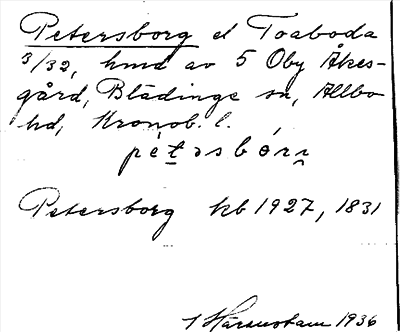 Petersborg el Toaboda
3/32, hmd av 5 Oby Åkes-
gård, Blädinge sn, Allbo
hd, Kronob. l.
pétəsbórı
Petersborg kb 1927, 1831
1936